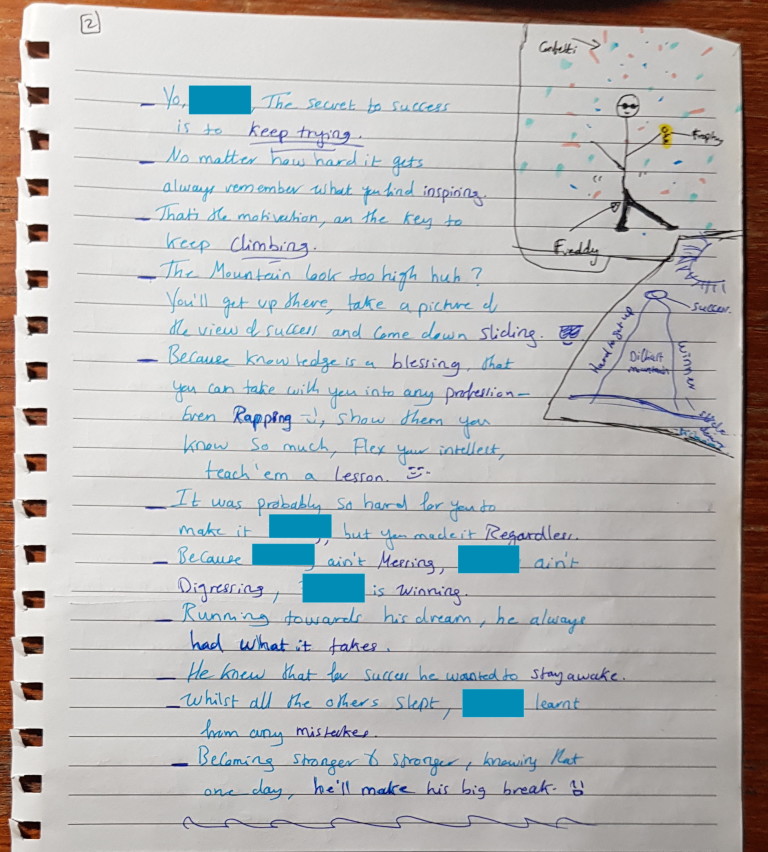 2
Confetti
Freddy
success
Hard to get up
Winner
mountain
- Yo, , The secret to success
is to keep trying.
- No matter how hard it gets
always remember what you find inspiring.
- That's the motivation, an the key to
keep climbing.
- The Mountain look too high huh?
You'll get up there, take a picture of
the view of success and come down sliding.
- Because knowledge is a blessing, that
you can take with you into any profession-
Even Rapping, show them you
know so much, Flex your intellect,
teach 'em a Lesson.
- It was probably so hard for you to
make it , but you made it Regardless.
- Because , ain't Messing, ain't
Digressing, is winning.
- Running towards his dream, he always
had what it takes.
- He knew that for success he wanted to stay awake.
- Whilst all the others slept, learnt
from any mistakes.
- Becoming stronger & stronger, knowing that
one day, he'll make his big break.